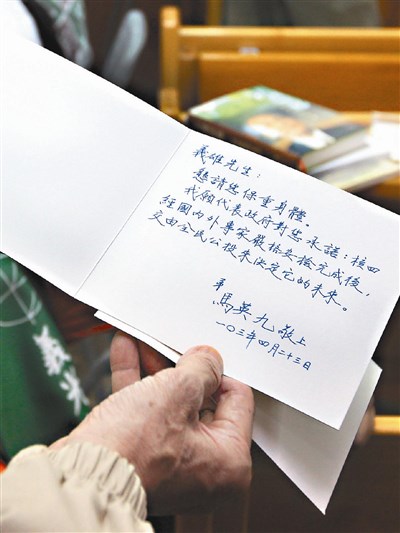 義雄先生：
懇請您保重身體。
我願代表政府對您承諾：核四
經國內外專家嚴格安檢完成後，
交由全民公投來決定它的未來。
弟
馬英九敬上
一〇三年四月二十三日